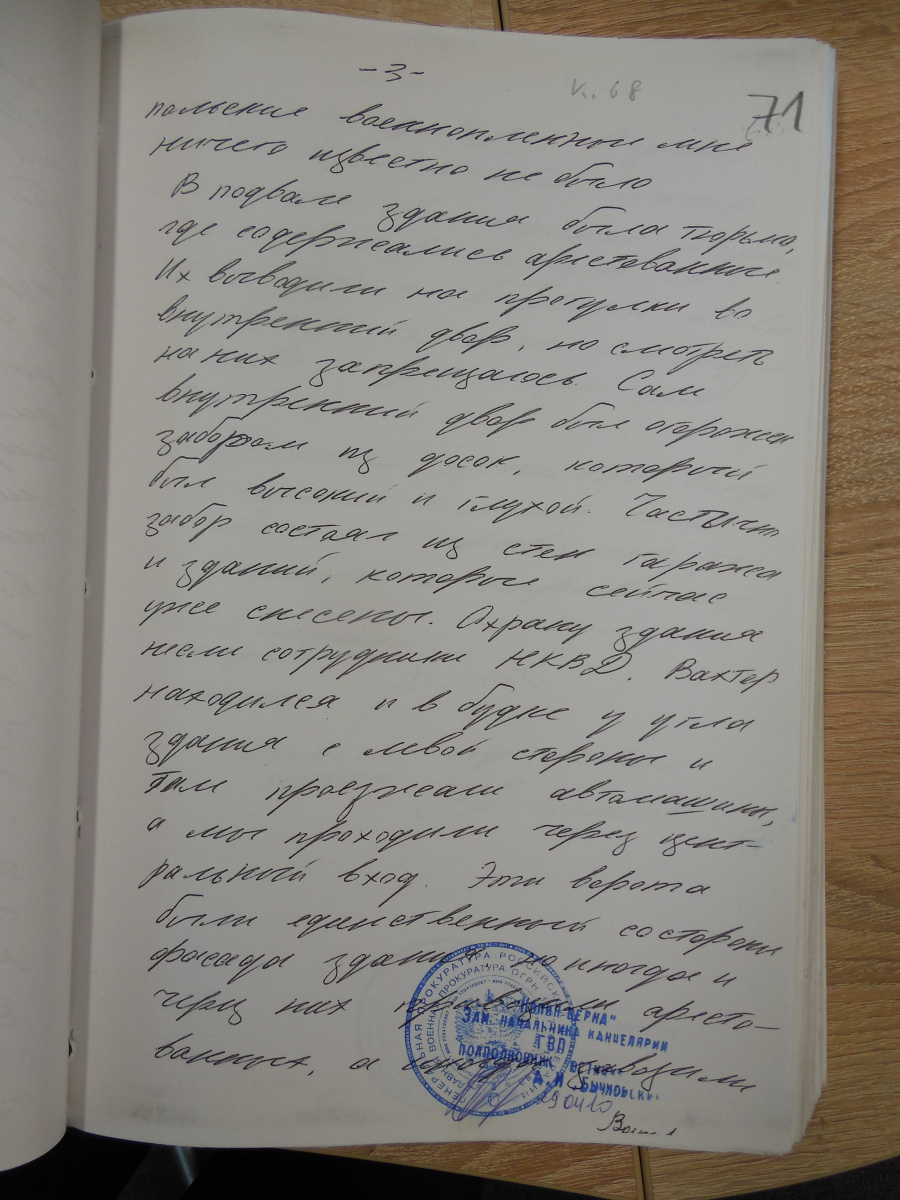 -3-
К. 68
71
польские военнопленные мне
ничего известно не было
В подвале здания была тюрьма,
где содержались арестованные.
Их выводили на прогулки во
внутренний двор, но смотреть
на них запрещалось. Сам
внутренний двор был огорожен
забором из досок, который
был высокий и глухой. Частично
забор состоял из стен гаража
и зданий, которые сейчас
уже снесены. Охрану здания
несли сотрудники НКВД. Вахтер
находился и в будке у угла
здания с левой стороны и
там проезжали автомашины,
а мы проходили через цент-
ральный вход. Эти ворота
были единственный со стороны
фасада здания, но иногда и
через них проводили аресто-
ванных, а
ГЕНЕРАЛЬНАЯ ПРОКУРАТУРА РОССИЙСКОЙ ФЕДЕРАЦИИ
ГЛАВНАЯ ВОЕННАЯ ПРОКУРАТУРА ОГРН
"КОПИЯ ВЕРНА"
ЗАМ. НАЧАЛЬНИКА КАНЦЕЛЯРИИ
ГВП
ПОДПОЛКОВНИК ЮСТИЦИИ
190410